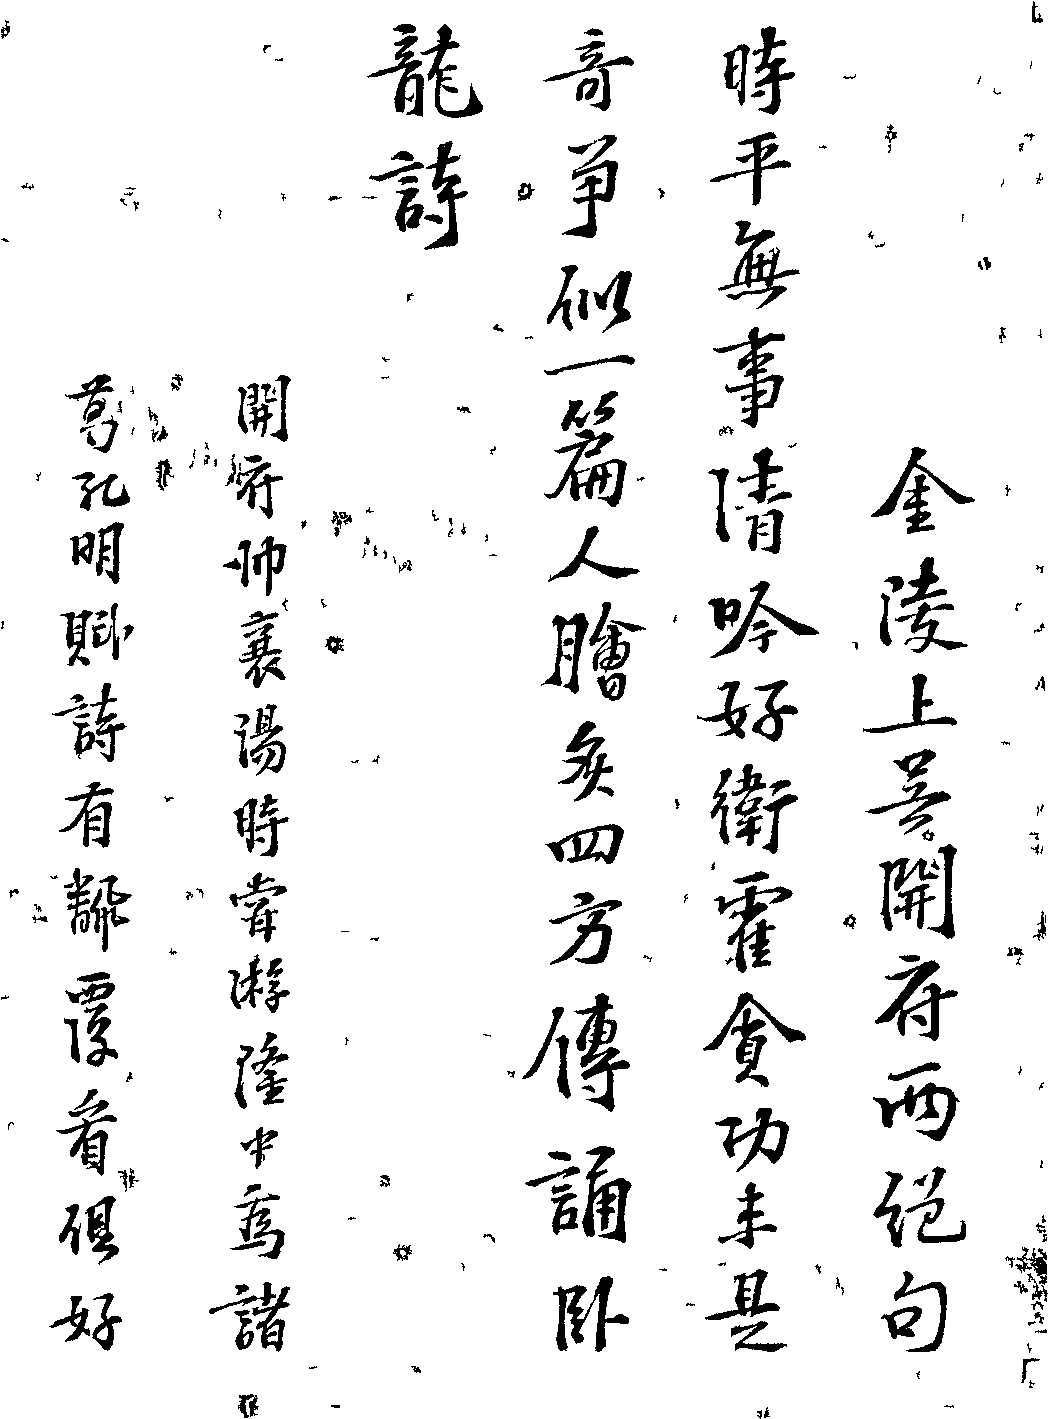 金陵上吴開府兩絕句
時平無事清吟好衛霍貪功未是
奇爭似一篇人膾炙四方傳誦臥
龍詩
開府帥襄陽時嘗游隆中爲諸
葛孔明賦詩有飜覆看俱好